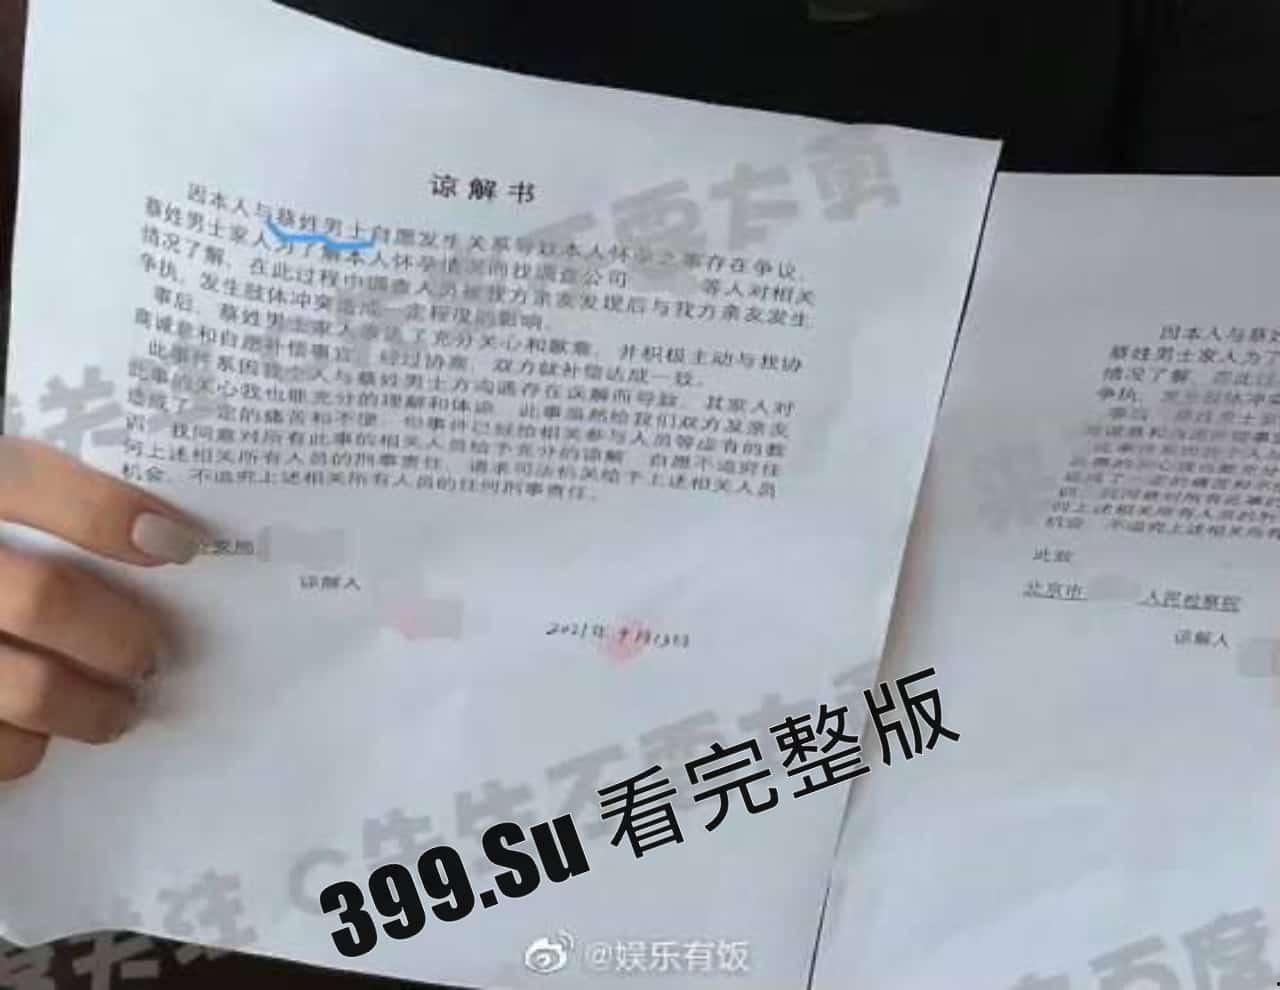 谅解书
因本人与蔡姓男士自愿发生关系导致本人怀孕之事存在争议，
蔡姓男士家人为了解本人怀孕情况而找调查公司 等人对相关
情况了解，在此过程中调查人员被我方亲友发现后与我方亲友发生
争执，发生肢体冲突造成一定程度的影响。
事后，蔡姓男士家人表达了充分关心和歉意，并积极主动与我协
商诚意和自愿补偿事宜，经过协商，双方就补偿达成一致。
此事件系因我个人与蔡姓男士方沟通存在误解而导致，其家人对
此事的关心我也能充分的理解和体谅，此事虽然给我们双方及亲友
造成了一定的痛苦和不便，但事件已经给相关参与人员等应有的教
训，我同意对所有此事的相关人员给予充分的谅解，自愿不追究任
何上述相关所有人员的刑事责任，请求司法机关给予上述相关人员
机会，不追究上述相关所有人员的任何刑事责任。
安局
谅解人
2021年9月13日
因本人与蔡
蔡姓男士家人为了
情况了解，在此过
争执，发生肢体冲突
事后，蔡姓男士
此致
北京市 人民检察院
谅解人
399.Su 看完整版
@娱乐有饭